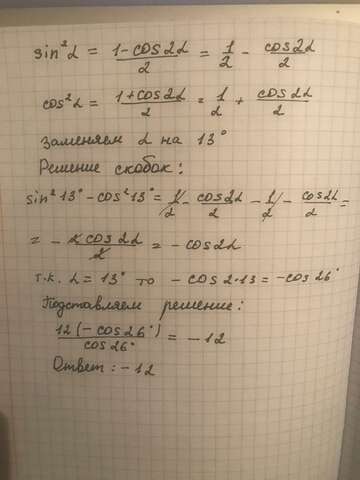 sin²α = (1-cos2α)/2 = 1/2 - cos2α/2
cos²α = (1+cos2α)/2 = 1/2 + cos2α/2
Заменяем α на 13°
Решение скобок:
sin²13° - cos²13° = 1/2 - cos2α/2 - 1/2 - cos2α/2 =
= - 2cos2α/2 = - cos2α
т.к. α = 13° то - cos2·13 = -cos26°
Подставляем решение:
12(-cos26°)/cos26° = -12
Ответ: -12